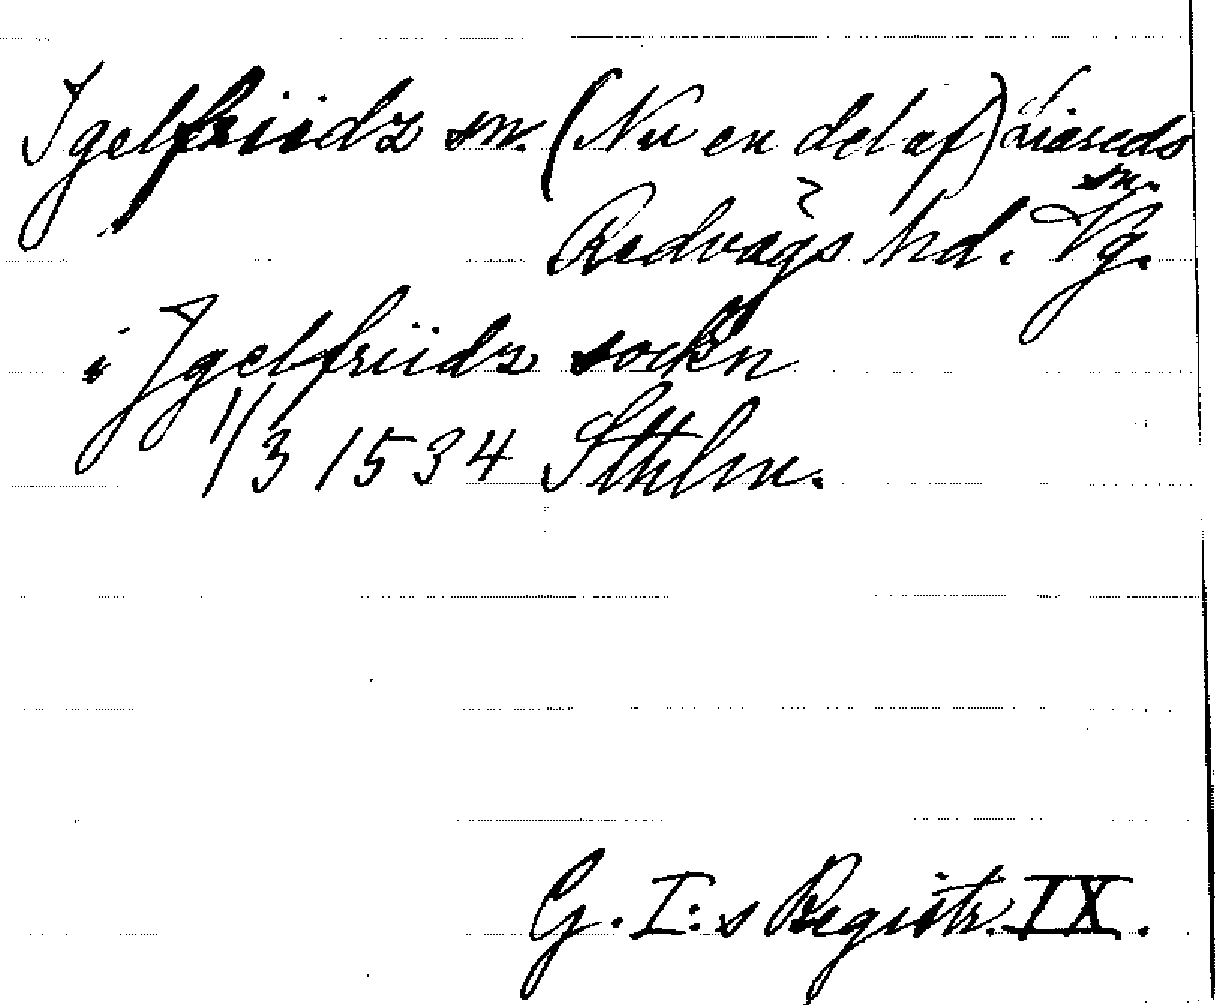 Igelfriidz sn. (Nu en del af) Liareds sn.
Redvägs hd. Vg.
i Jgelfriidz sockn
1/3 1534 Sthlm.
G. I:s Registr. IX.